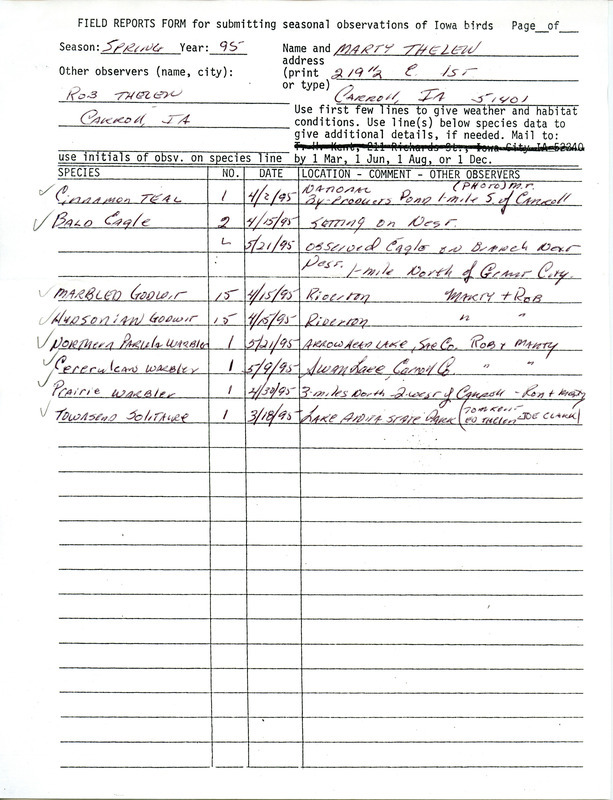 FIELD REPORTS FORM for submitting seasonal observations of Iowa birds Page__of___
Season: SPRING Year: 95 Name and MARTY THELEN
address
Other observers (name, city): (print 219 1/2 E. 1ST
or type)
ROB THELEN CARROLL, IA 51401
CARROLL, IA
Use first few lines to give weather and habitat
conditions. Use line(s) below species data to
give additional details, if needed. Mail to:
T. H. Kent, 211 Richards St., Iowa City IA 52240
use initials of obsv. on species line by 1 Mar, 1 Jun, 1 Aug, or 1 Dec.
SPECIES NO. DATE LOCATION - COMMENT - OTHER OBSERVERS
NATIONAL (PHOTO) M.T.
✓ Cinnamon TEAL 1 4/2/95 By-Products Pond 1-mile S. of Carroll
✓ BALD Eagle 2 4/15/95 Setting on Nest.
5/21/95 Observed Eagle on Branch Next
Nest. 1-mile North of Grant City.
✓ MARBLED GODWIT 15 4/15/95 Riverton MARTY + ROB
✓ HUDSONIAN GODWIT 15 4/15/95 Riverton " "
✓ NORTHERN PARULA WARBLER 1 5/21/95 ARROWHEAD LAKE, SAC Co. ROB + MARTY
✓ Cereulean WARBLER 1 5/9/95 Swan Lake, Carroll Co. " "
✓ Prairie WARBLER 1 4/30/95 3-miles North 2 west of CARROLL - Ron + Marty
✓ TOWNSEND SOLITAIRE 1 3/18/95 LAKE STATE PARK (TOM KENT ED THELEN JOE CLARK)